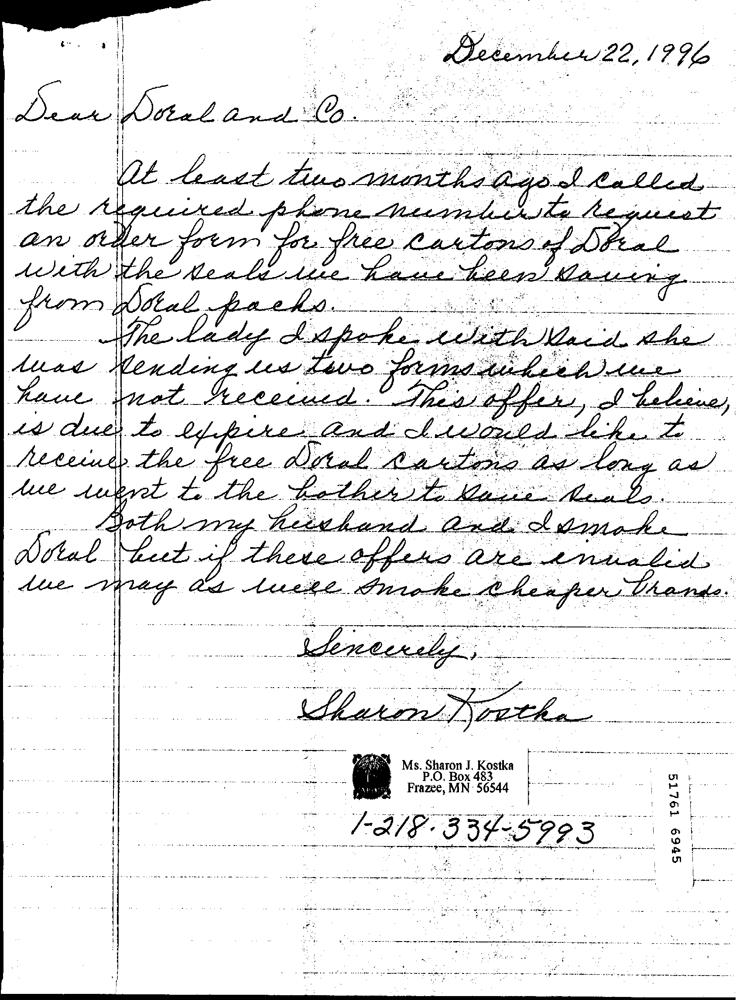 December 22, 1996
Dear Doral and Co.
At least two months ago I called
the required phone number to request
an order form for free cartons of Doral
with the seals we have been saving
from Doral packs.
The lady I spoke with said she
was sending us two forms which we
have not received. This offer, I believe,
is due to expire and I would like to
receive the free Doral cartons as long as
we went to the bother to save seals.
Both my husband and I smoke
Doral but if these offers are invalid
we may as well smoke cheaper brands.
Sincerely,
Sharon Kostka
Ms. Sharon J. Kostka
P.O. Box 483
Frazee, MN 56544
1-218-334-5993
51761 6945